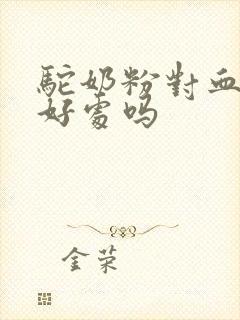 駝奶粉對血
好處嗎
金荣